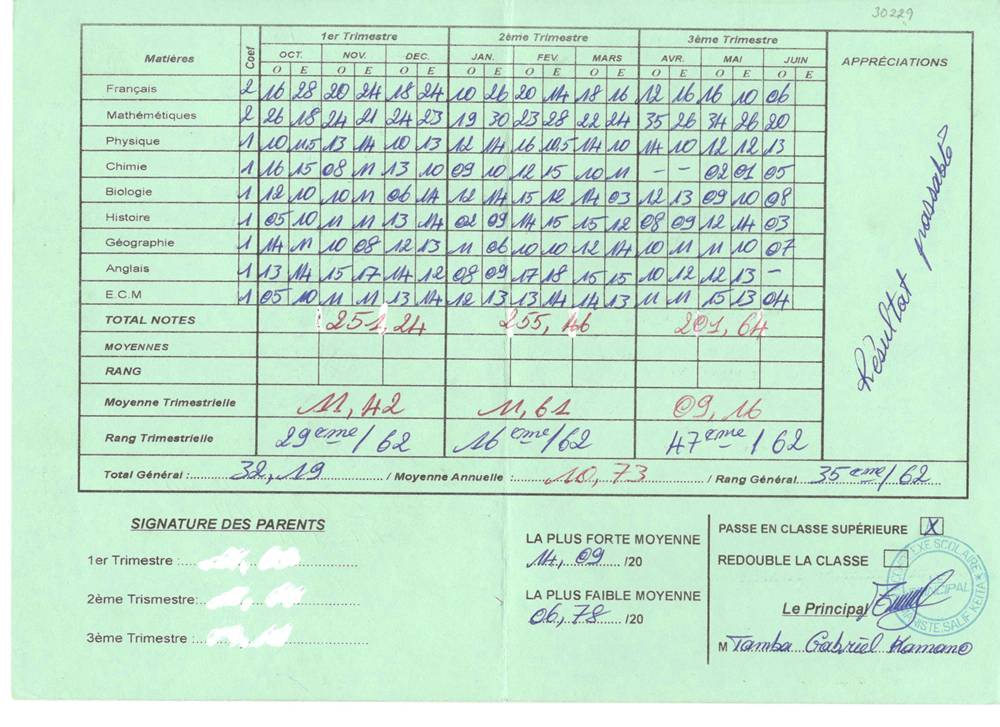 30229
1er Trimestre 2ème Trimestre 3ème Trimestre
Matières Coef OCT. NOV. DEC. JAN. FEV. MARS AVR. MAI JUIN APPRÉCIATIONS
O E O E O E O E O E O E O E O E O E
Français 2 16 28 20 24 18 24 10 26 20 14 18 16 12 16 16 10 06
Mathémétiques 2 26 18 24 21 24 23 19 30 23 28 22 24 35 26 34 26 20
Physique 1 10 11,5 13 14 10 13 12 14 16 10,5 14 10 14 10 12 12 13
Chimie 1 16 15 08 11 13 10 09 10 12 15 10 11 - - 02 01 05
Biologie 1 12 10 10 11 06 14 12 14 15 12 14 03 12 13 09 10 08
Histoire 1 05 10 11 11 13 14 02 09 14 15 15 12 08 09 12 14 03
Géographie 1 14 11 10 08 12 13 11 06 10 10 12 14 10 11 11 10 07
Anglais 1 13 14 15 17 14 12 08 09 17 18 15 15 10 12 12 13 -
E.C.M 1 05 10 11 11 13 14 12 13 13 14 14 13 11 11 15 13 04
TOTAL NOTES 251,24 255,46 201,64
MOYENNES
RANG
Moyenne Trimestrielle 11,42 11,61 09,16
Rang Trimestrielle 29ème/62 16ème/62 47ème/62
Résultat passable
Total Général : 32,19 / Moyenne Annuelle : 10,73 / Rang Général 35ème/62
SIGNATURE DES PARENTS
1er Trimestre :
2ème Trismestre:
3ème Trimestre :
LA PLUS FORTE MOYENNE
14,09 /20
LA PLUS FAIBLE MOYENNE
06,78 /20
PASSE EN CLASSE SUPÉRIEURE X
REDOUBLE LA CLASSE
Le Principal
M Tamba Gabriel Kamano